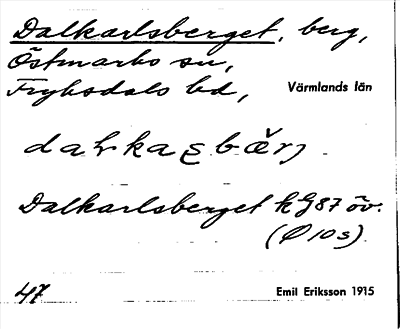 Dalkarlsberget, berg,
Östmarks sn,
Fryksdals hd, Värmlands län
Dalkarlsberget kG87 öv.
(Ø 10 s).
47 Emil Eriksson 1915